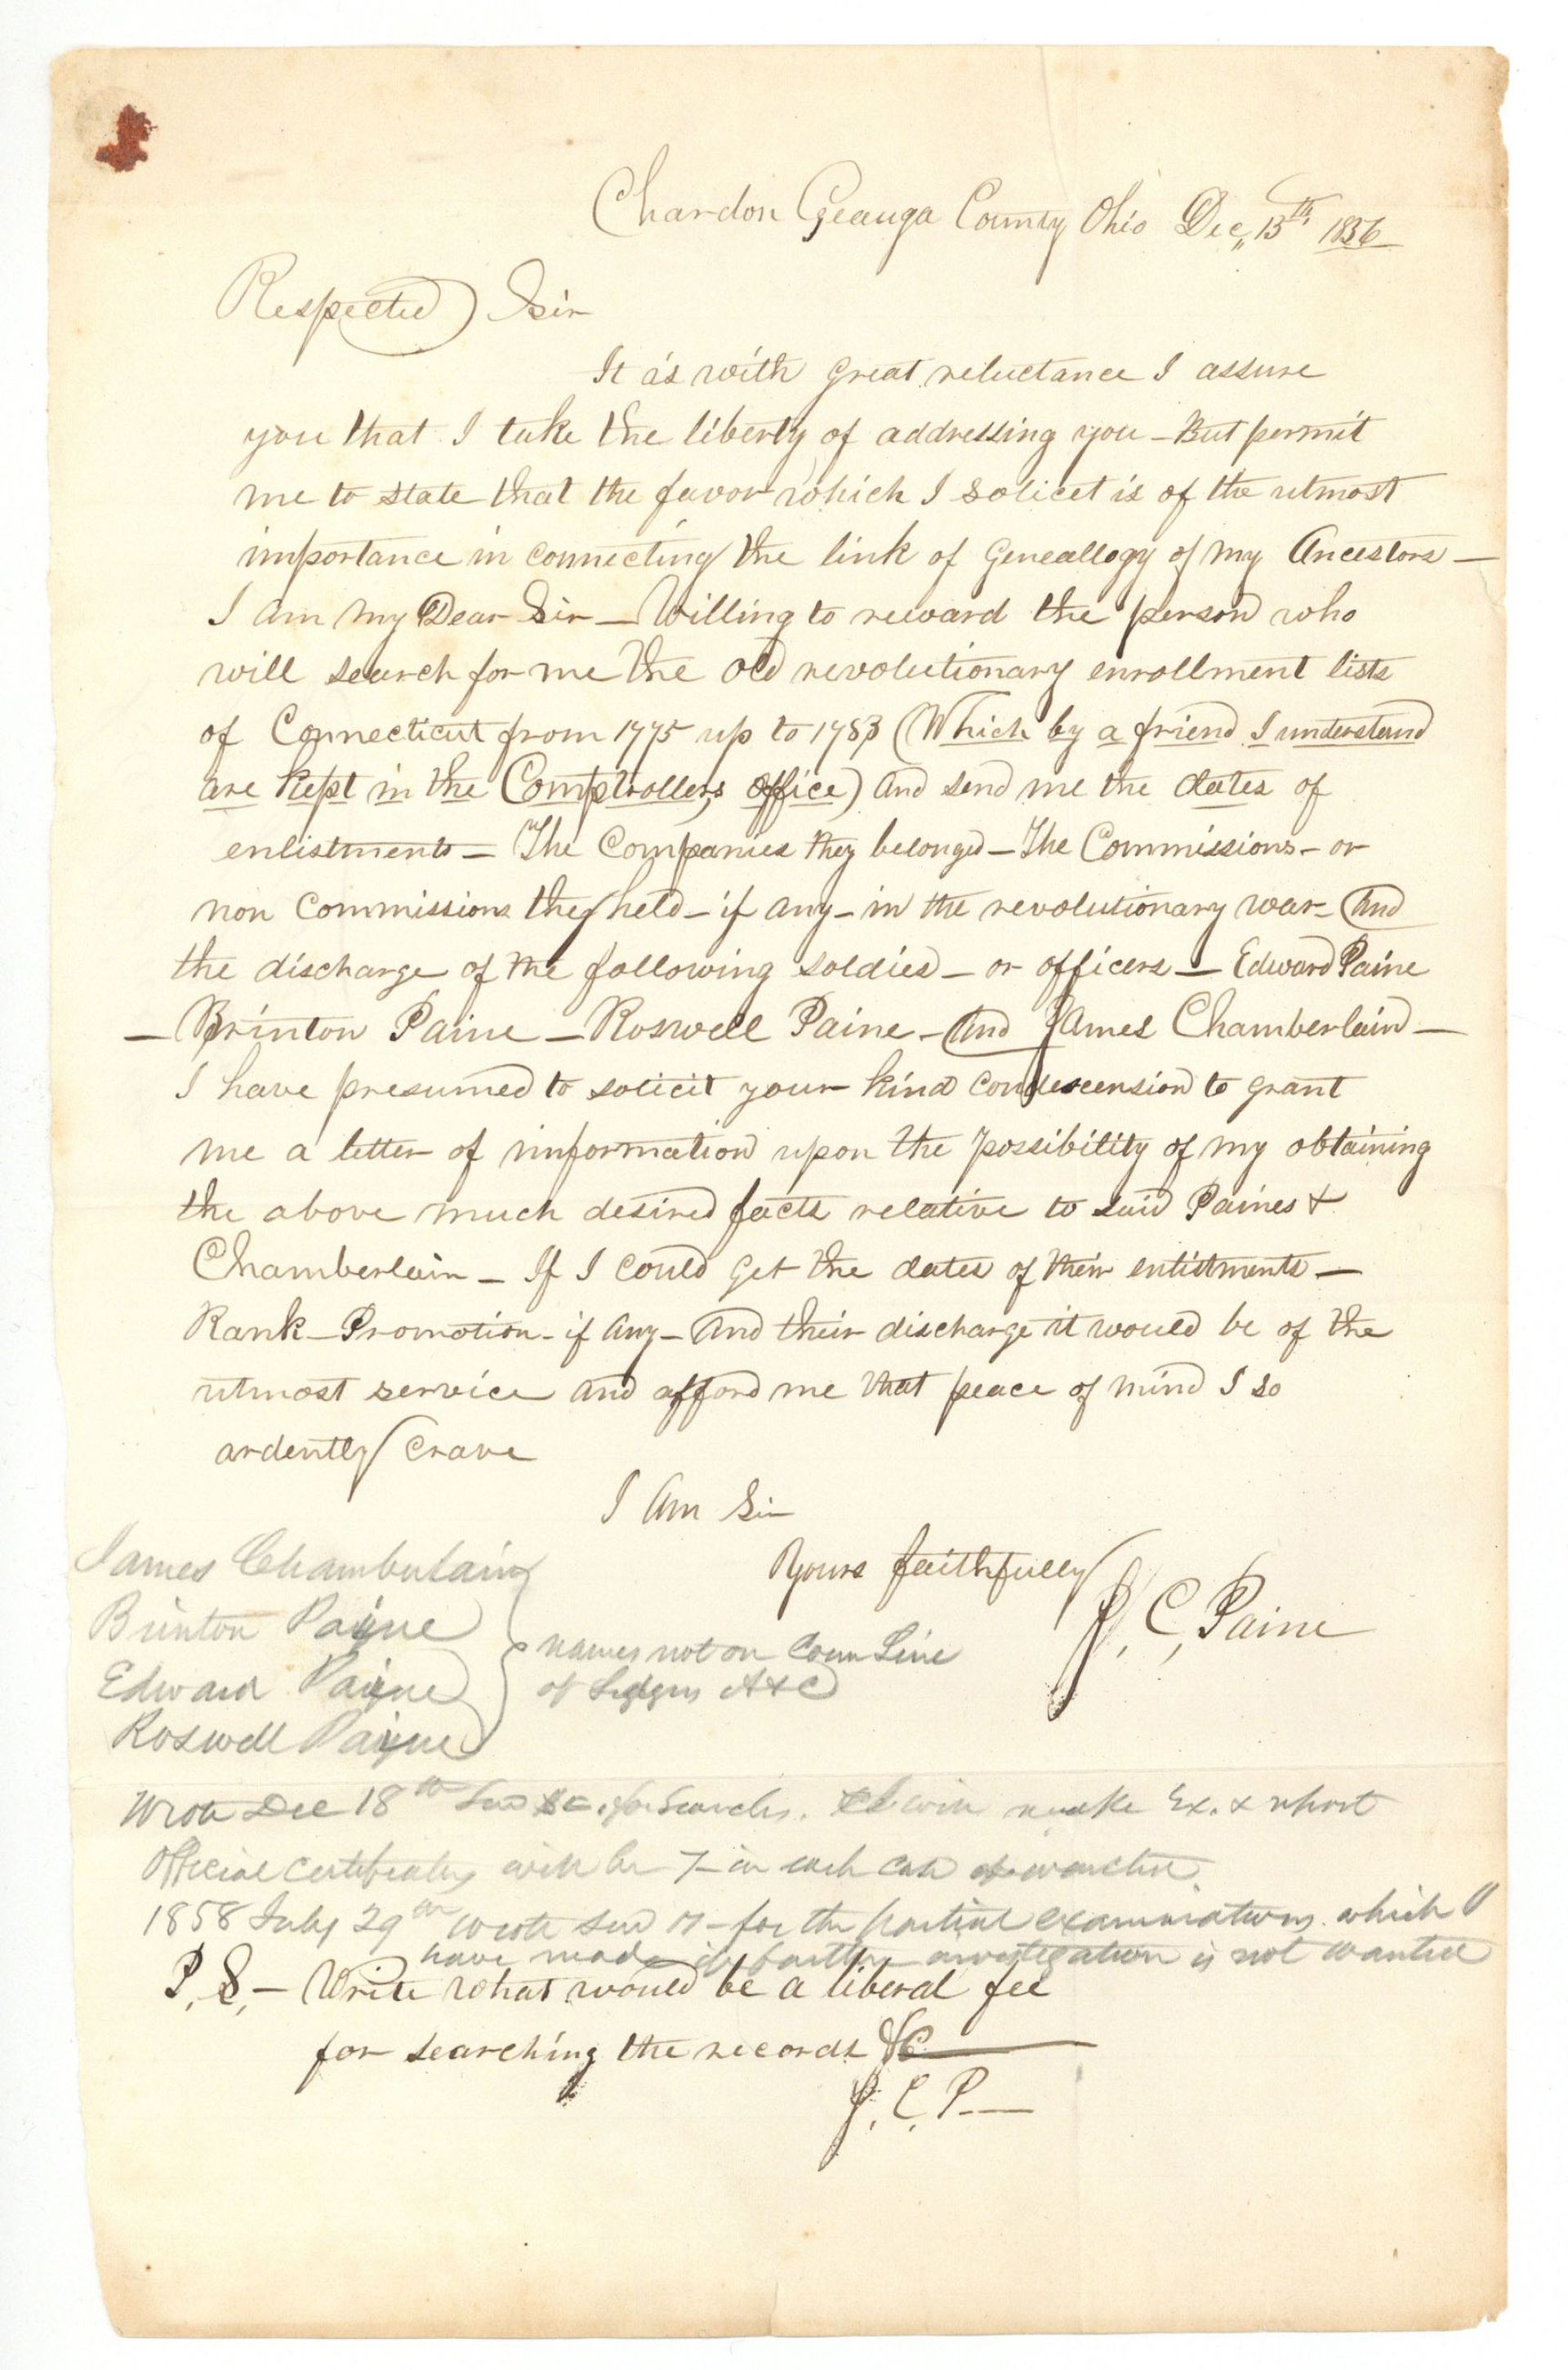 Chardon Geauga County Ohio Dec,, 13th 1856
Respected Sir
It is with great reluctance I assure
you that I take the liberty of addressing you – But permit
me to state that the favor which I solicet is of the utmost
importance in connecting the link of Geneallogy of my Ancestors –
I am my Dear Sir – Willing to reward the person who
will search for me the old revolutionary enrollment lists
of Connecticut from 1775 up to 1783 (Which by a friend I understand
are kept in the Comptrollers, office) and send me the dates of
enlistments – The Companies they belonged – The Commissions – or
non commissions they held – if any – in the revolutionary war – And
the discharge of the following soldies – or officers – Edward Paine
– Brinton Paine – Roswell Paine – And James Chamberlain –
I have presumed to solicit your kind condescension to grant
me a letter of information upon the possibility of my obtaining
the above much desired facts relative to said Paines &
Chamberlain – If I could get the dates of their enlistments –
Rank – Promotion – if any – And their discharge it would be of the
utmost service and afford me that peace of mind I so
ardently crave
I am Sir
Yours faithfully
J. C. Paine
James Chamberlain
Brinton Payne
Edward Payne
Roswell Payne
names not on Conn Line
of Ledgers A & C
Wrote Dec 18th for Searches. will make Ex. & report
Official Certificates will be in each case
1858 July 29th wrote for the partial examinations which I
have made if further investigation is not wanted
P. S. – Write what would be a liberal fee
for searching the records &C
J. C. P.